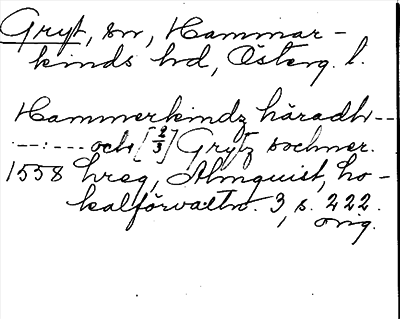 Gryt, sn, Hammar-
kinds hd, Österg. l.
Hammerkindz häradh --
--:--- och [2/3] Grytz sochner.
1558 hreg, Almquist, Lo-
kalförvaltn. 3, s. 222.
orig.